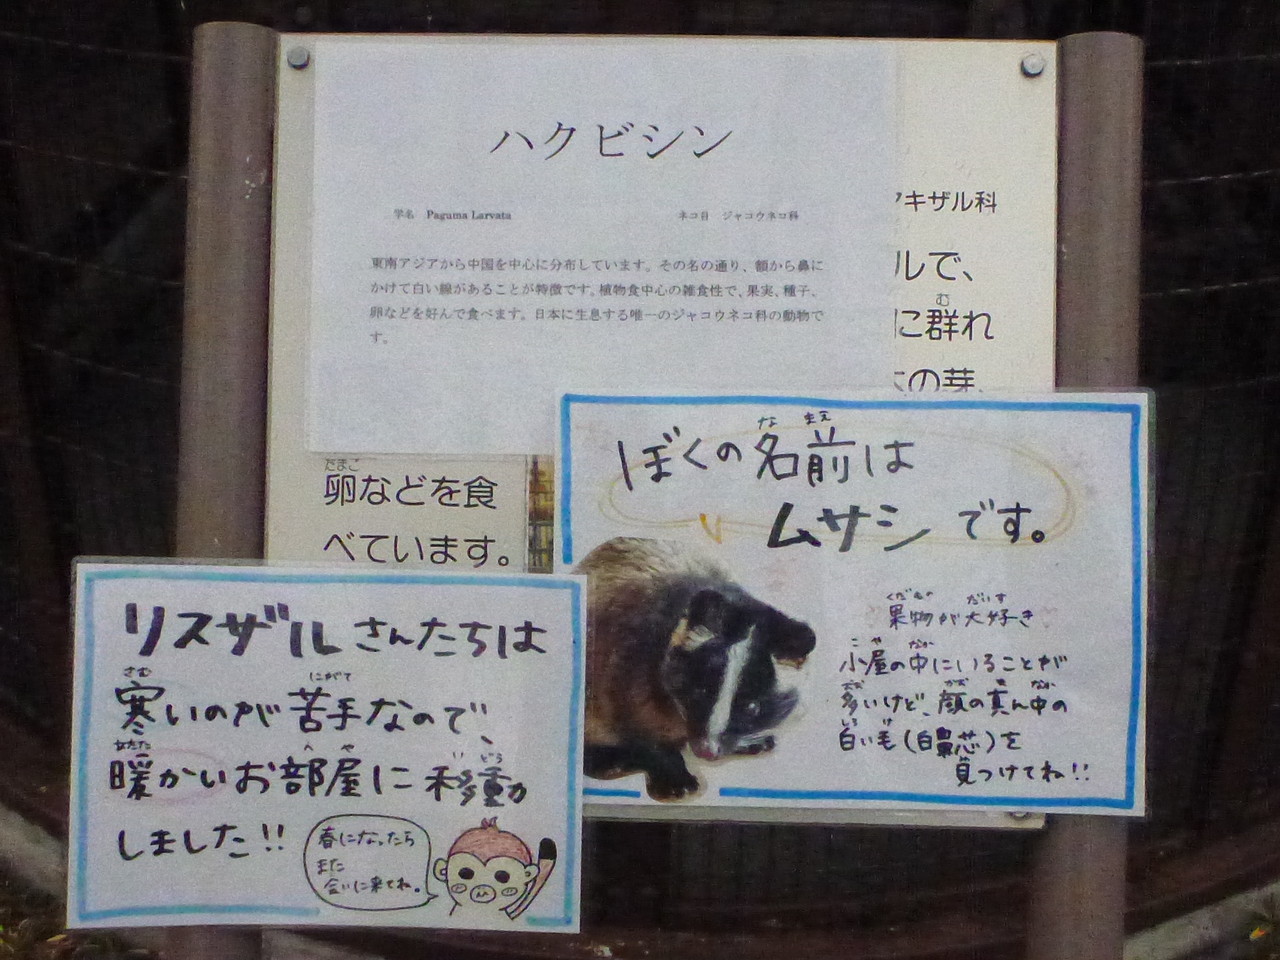 ハクビシン
学名 Paguma Larvata
ネコ目 ジャコウネコ科
東南アジアから中国を中心に分布しています。その名の通り、額から鼻に
かけて白い線があることが特徴です。植物食中心の雑食性で、果実、種子、
卵などを好んで食べます。日本に生息する唯一のジャコウネコ科の動物で
す。
キザル科
ルで、
む
に群れ
の芽、
たまご
卵などを食
べています。
な まえ
ぼくの名前は
ムサシです。
くだもの だいす
果物が大好き
こや なか
小屋の中にいることが
おお かお ま なか
多いけど、顔の真ん中の
しろ け
白い毛(白鼻芯)を
見つけてね!!
リスザルさんたちは
さむ にがて
寒いのが苦手なので、
あたた へや いどう
暖かいお部屋に移動
しました!!
春になったら
また
会いに来てね。